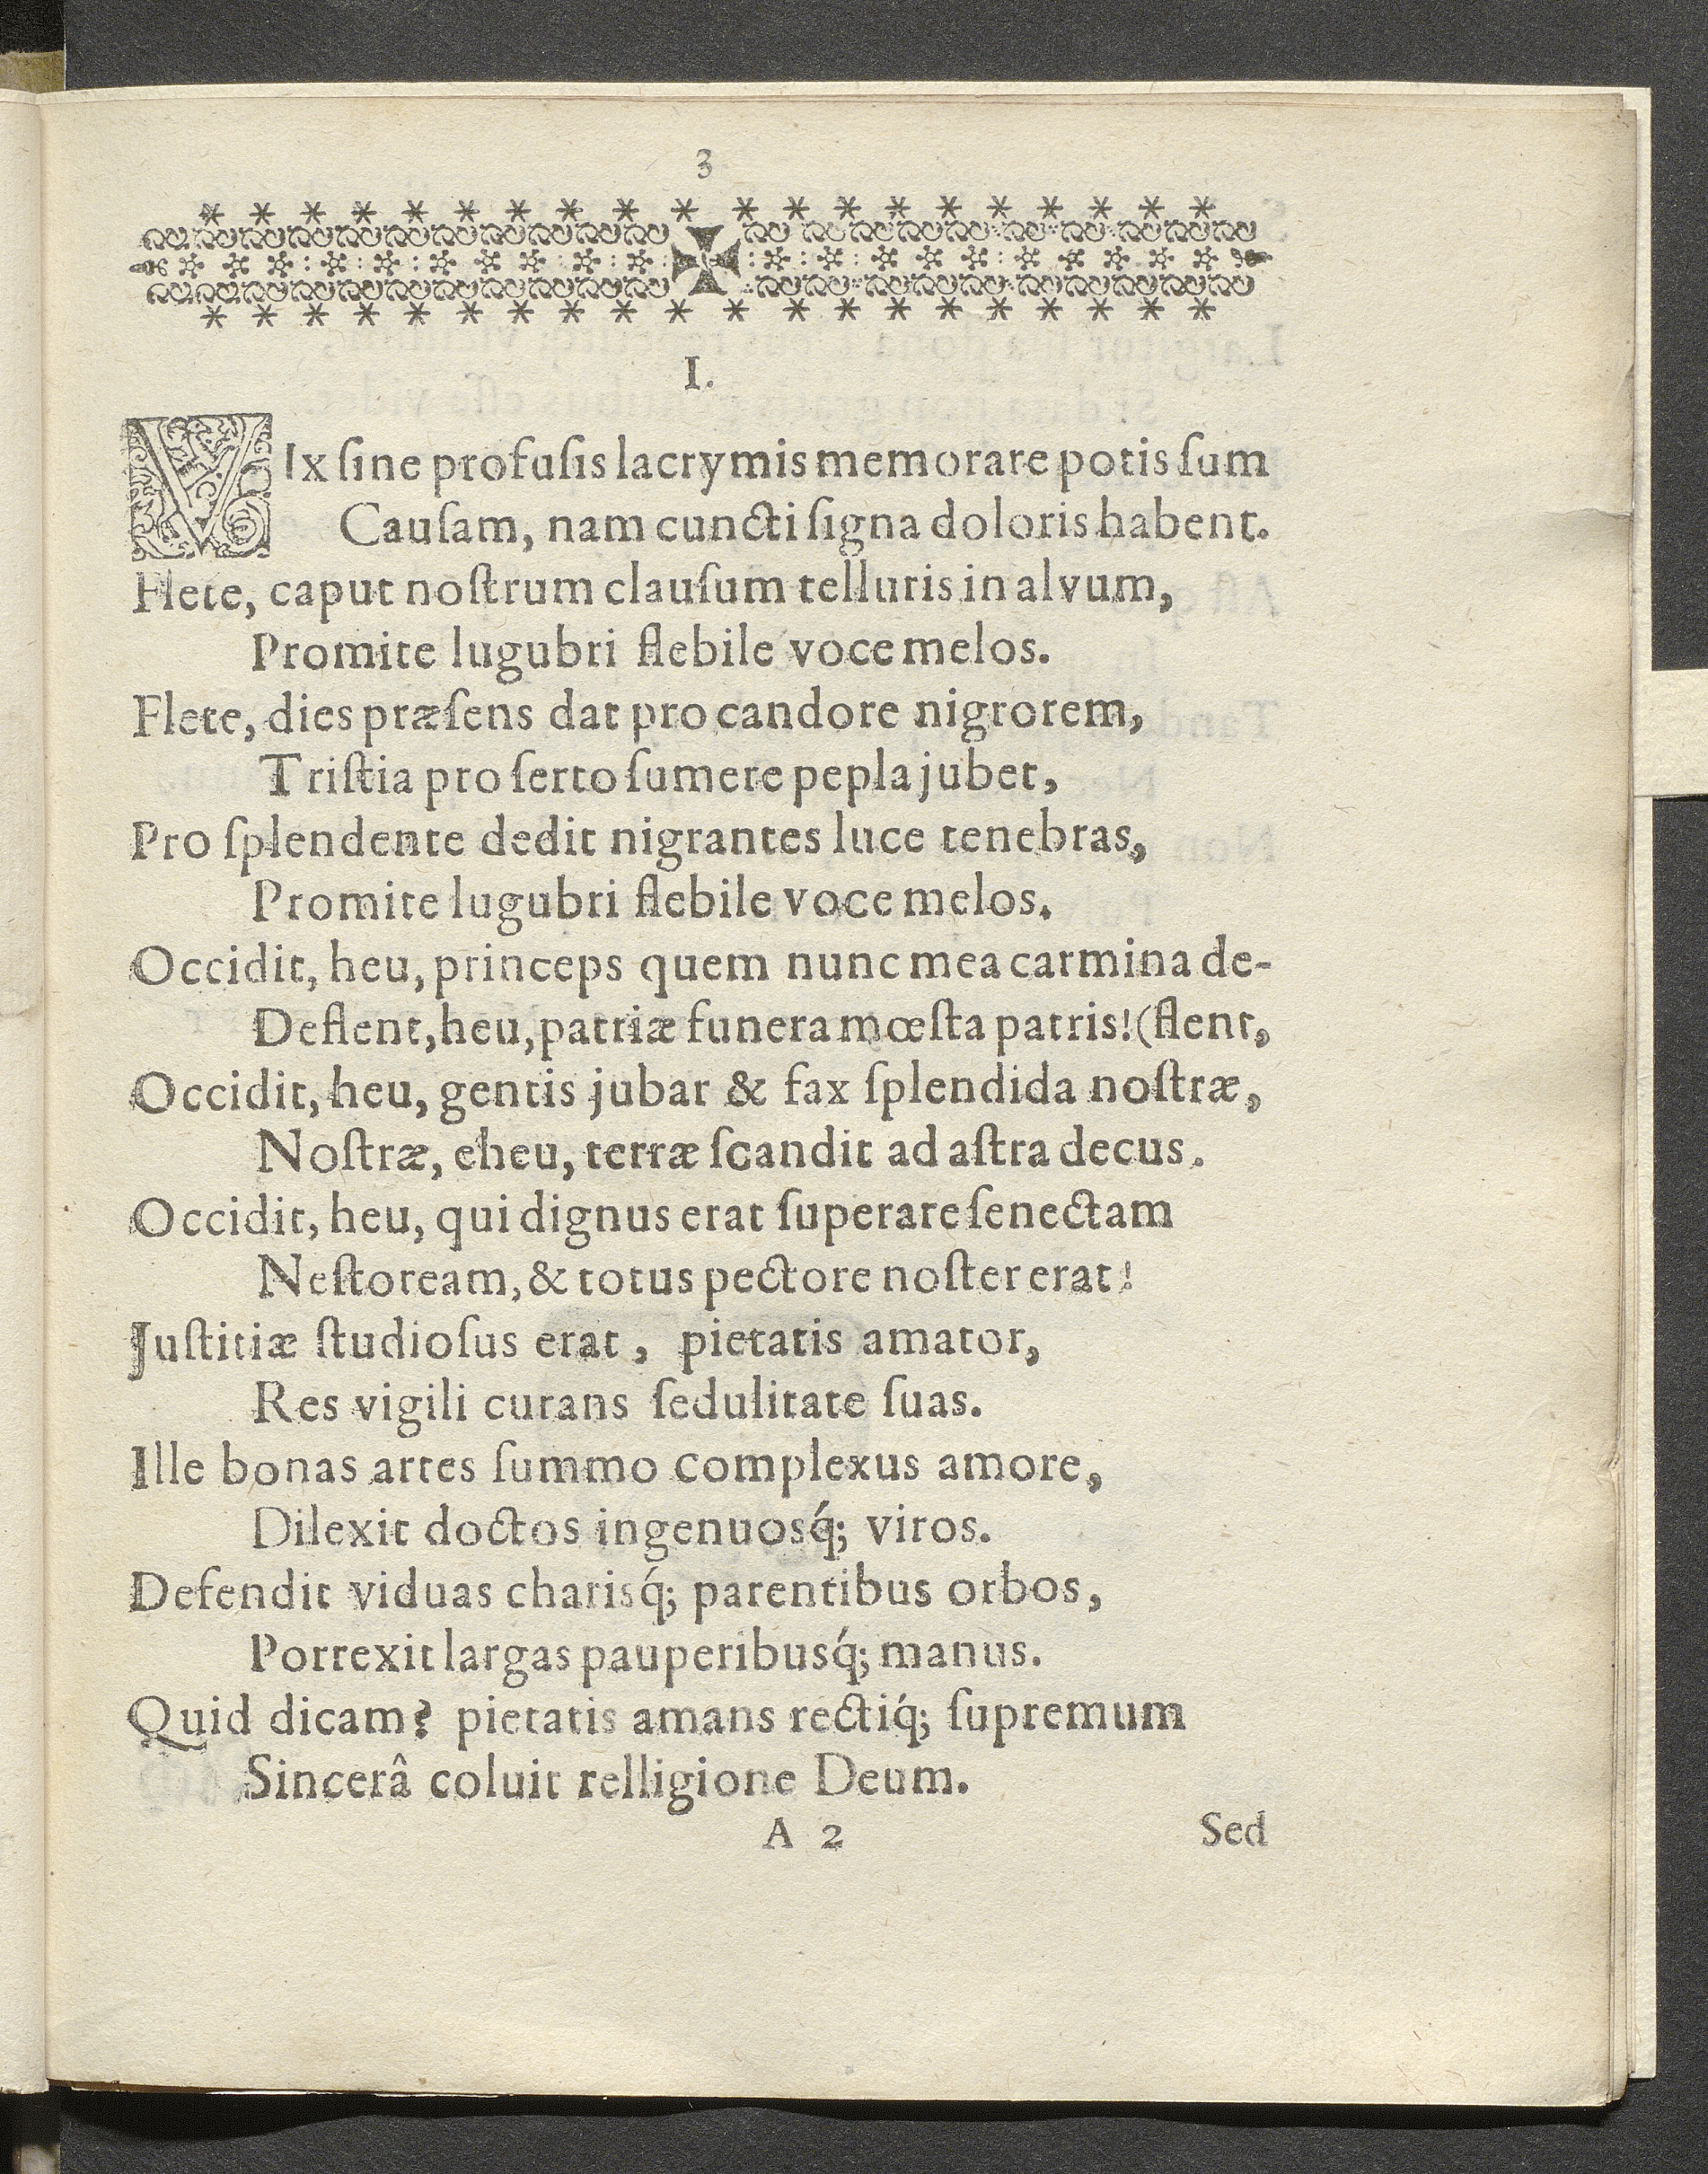 3
I.
VIx ſine profuſis lacrymis memorare potis ſum
Cauſam, nam cuncti ſigna doloris habent.
Flete, caput noſtrum clauſum telluris in alvum,
Promite lugubri flebile voce melos.
Flete, dies præſens dat pro candore nigrorem,
Triſtia pro ſerto ſumere pepla jubet,
Pro ſplendente dedit nigrantes luce tenebras,
Promite lugubri flebile voce melos.
Occidit, heu, princeps quem nunc mea carmina de-
Deflent, heu, patriæ funera mœſta patris! (flent,
Occidit, heu, gentis jubar & fax ſplendida noſtræ,
Noſtræ, eheu, terræ ſcandit ad aſtra decus.
Occidit, heu, qui dignus erat ſuperare ſenectam
Neſtoream, & totus pectore noſter erat!
Juſtitiæ ſtudioſus erat, pietatis amator,
Res vigili curans ſedulitate ſuas.
Ille bonas artes ſummo complexus amore,
Dilexit doctos ingenuosq́; viros.
Defendit viduas charisq́; parentibus orbos,
Porrexit largas pauperibusq́; manus.
Quid dicam? pietatis amans rectiq́; ſupremum
Sincerâ coluit relligione Deum.
A 2
Sed